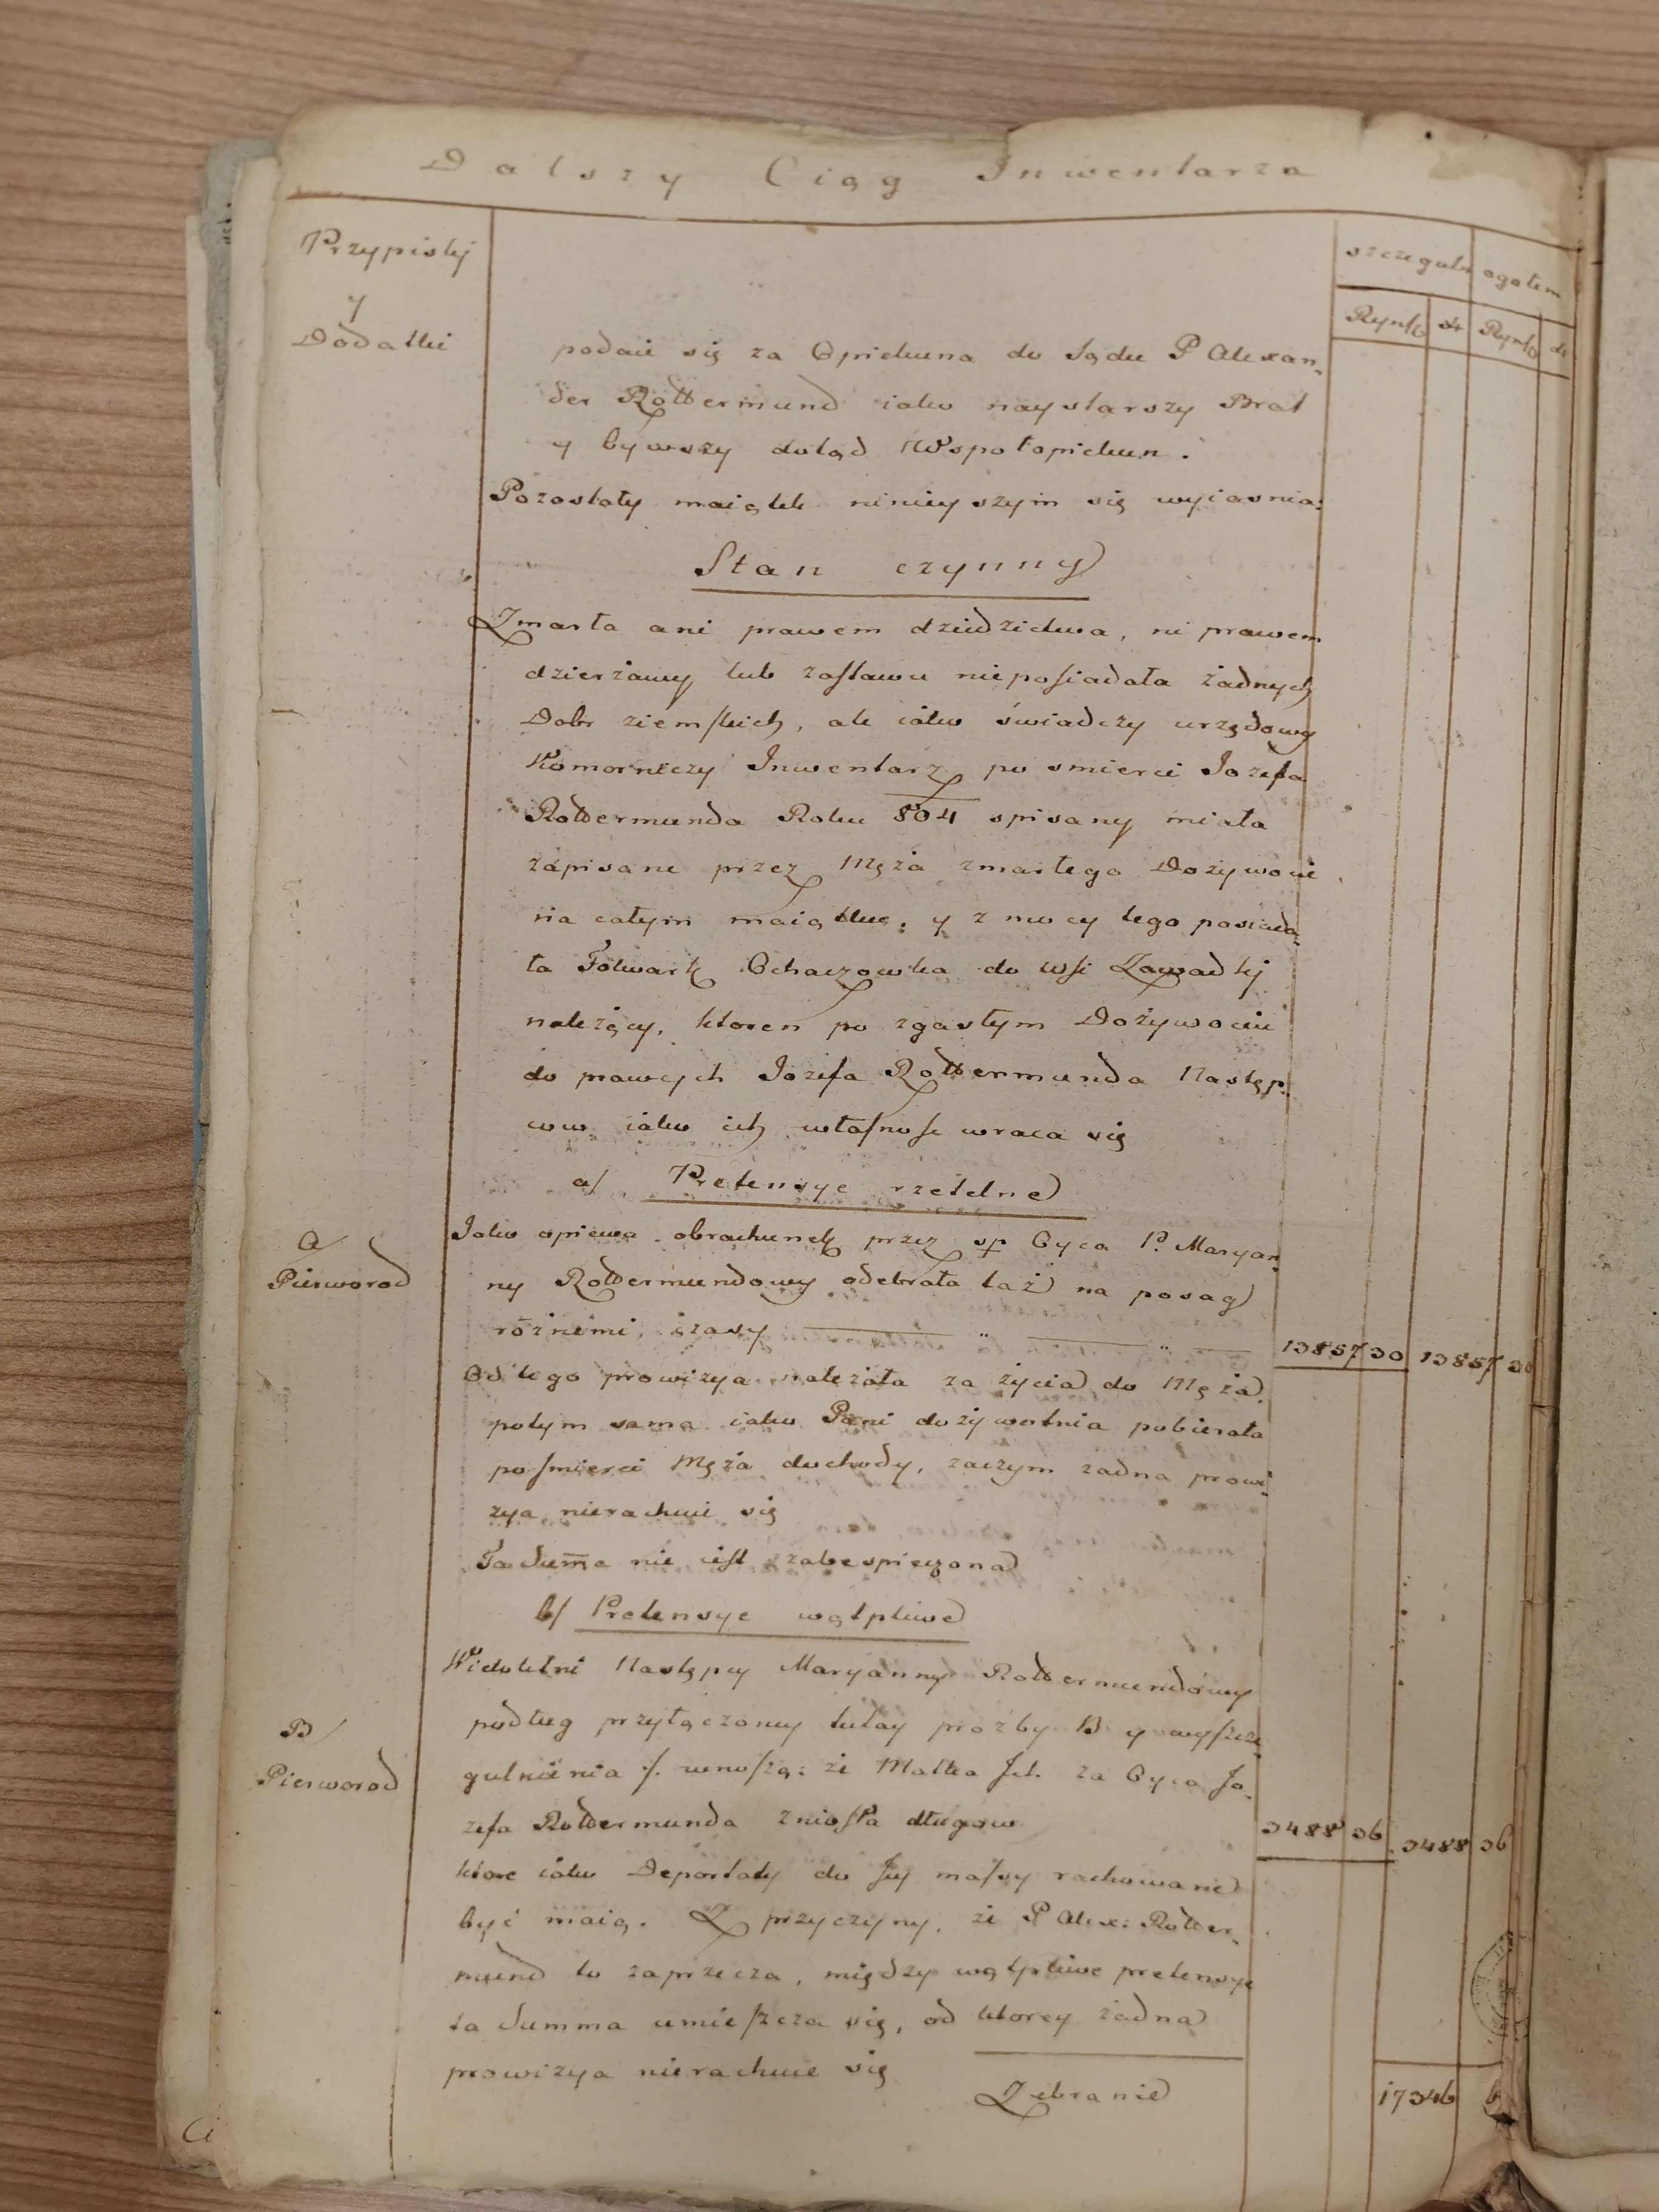 Dalszy Ciąg Inwentarza
Przypisky
y
Dodatki
szczeguln ogołem
Ryńsk xr Ryńsk xr
podaie się za Opiekuna do Sądu P Alexan-
der Rottermund iako naystarszy Brat
y bywszy dotąd Wspołopiekun.
Pozostały maiątek ninieyszym się wyiasnia:
Stan czynny
Zmarła ani prawem dziedzictwa, ni prawem
dzierżawy lub zastawu nieposiadała żadnych
Dobr ziemskich, ale iako świadczy urzędowy
Komorniczy Inwentarz po smierci Jozefa
Rottermunda Roku 804 spisany miała
zapisane przez Męża zmarłego Dożywocie
na całym maiątku, y z mocy tego posiada-
ła Folwark Ochaczowka do wsi Zawadky
należący, ktoren po zgasłym Dożywociu
do prawych Jozefa Rottermunda Następ-
cow iako ich własnosc wraca się
a/ Pretensye rzetelne
A/
Pierworod
Jako opiewa obrachunek przez sp Oyca P. Maryan-
ny Rottermundowy odebrała taż na posag
róznemi czasy " "
13857 30 13857 30
Od tego prowizya należała za życia do Męża
potym sama iako Pani dożywotnia pobierała
po smierci Męża dochody, zaczym zadna prowi-
zya nierachuie się
Ta Sum̄a nie iest zabespieczona
b/ Pretensye wątpliwe
Wieloletni Następcy Maryanny Rottermundowy
B/
Pierworod
podług przyłączony tutay prożby B y wyszcze-
gulnienia /. wnoszą: że Matka Ich za Oyca Jo-
zefa Rottermunda zniosła długow
3488 36 3488 36
ktore iako Deportaty do Jey massy rachowane
być maią. Z przyczyny, że P Alex: Rotter-
mund to zaprzecza, między wątpliwe pretensye
ta Summa umieszcza się, od ktorey żadna
prowizya nierachuie się
Zebranie
17346 6